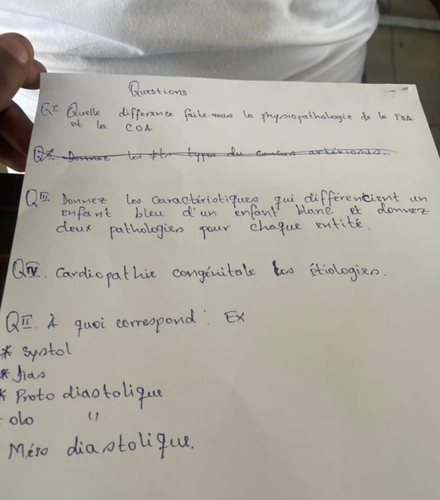 Questions
QI. Quelle différence faite-vous la physiopathologie de la
et la COA.
Donnez les types du
QIII. Donnez les caractéristiques qui différencient un
enfant bleu d'un enfant blanc et donnez
deux pathologies pour chaque entité.
QIV. Cardiopathie congénitale les étiologies.
QII. À quoi correspond : Ex
* Systol
* Dias
* Proto diastolique
olo "
Méso diastolique.